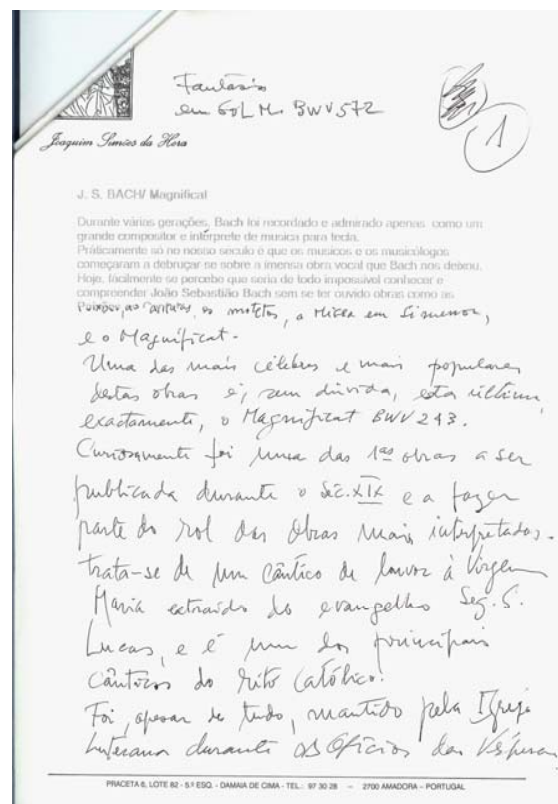 Fantasia
em Sol M. BWV 572
1
Joaquim Simões da Hora
J. S. BACH/ Magnificat
Durante várias gerações, Bach foi recordado e admirado apenas como um
grande compositor e intérprete de musica para tecla.
Práticamente só no nosso seculo é que os musicos e os musicólogos
começaram a debruçar-se sobre a imensa obra vocal que Bach nos deixou.
Hoje, fácilmente se percebe que seria de todo impossivel conhecer e
compreender João Sebastião Bach sem se ter ouvido obras como as
Paixões, as Cantatas, os motetos, a Missa em Si menor,
e o Magnificat.
Uma das mais célebres e mais populares
destas obras é, sem dúvida, esta última,
exactamente, o Magnificat BWV 243.
Curiosamente foi uma das 1as obras a ser
publicada durante o Séc. XIX e a fazer
parte do rol das obras mais interpretadas.
Trata-se de um cântico de louvor à Virgem
Maria extraído do evangelho Seg. S.
Lucas, e é um dos principais
cânticos do rito católico.
Foi, apesar de tudo, mantido pela Igreja
Luterana durante os Ofícios das Vésperas
PRACETA 6, LOTE 82 - 5.º ESQ. - DAMAIA DE CIMA - TEL.: 97 30 28 – 2700 AMADORA – PORTUGAL